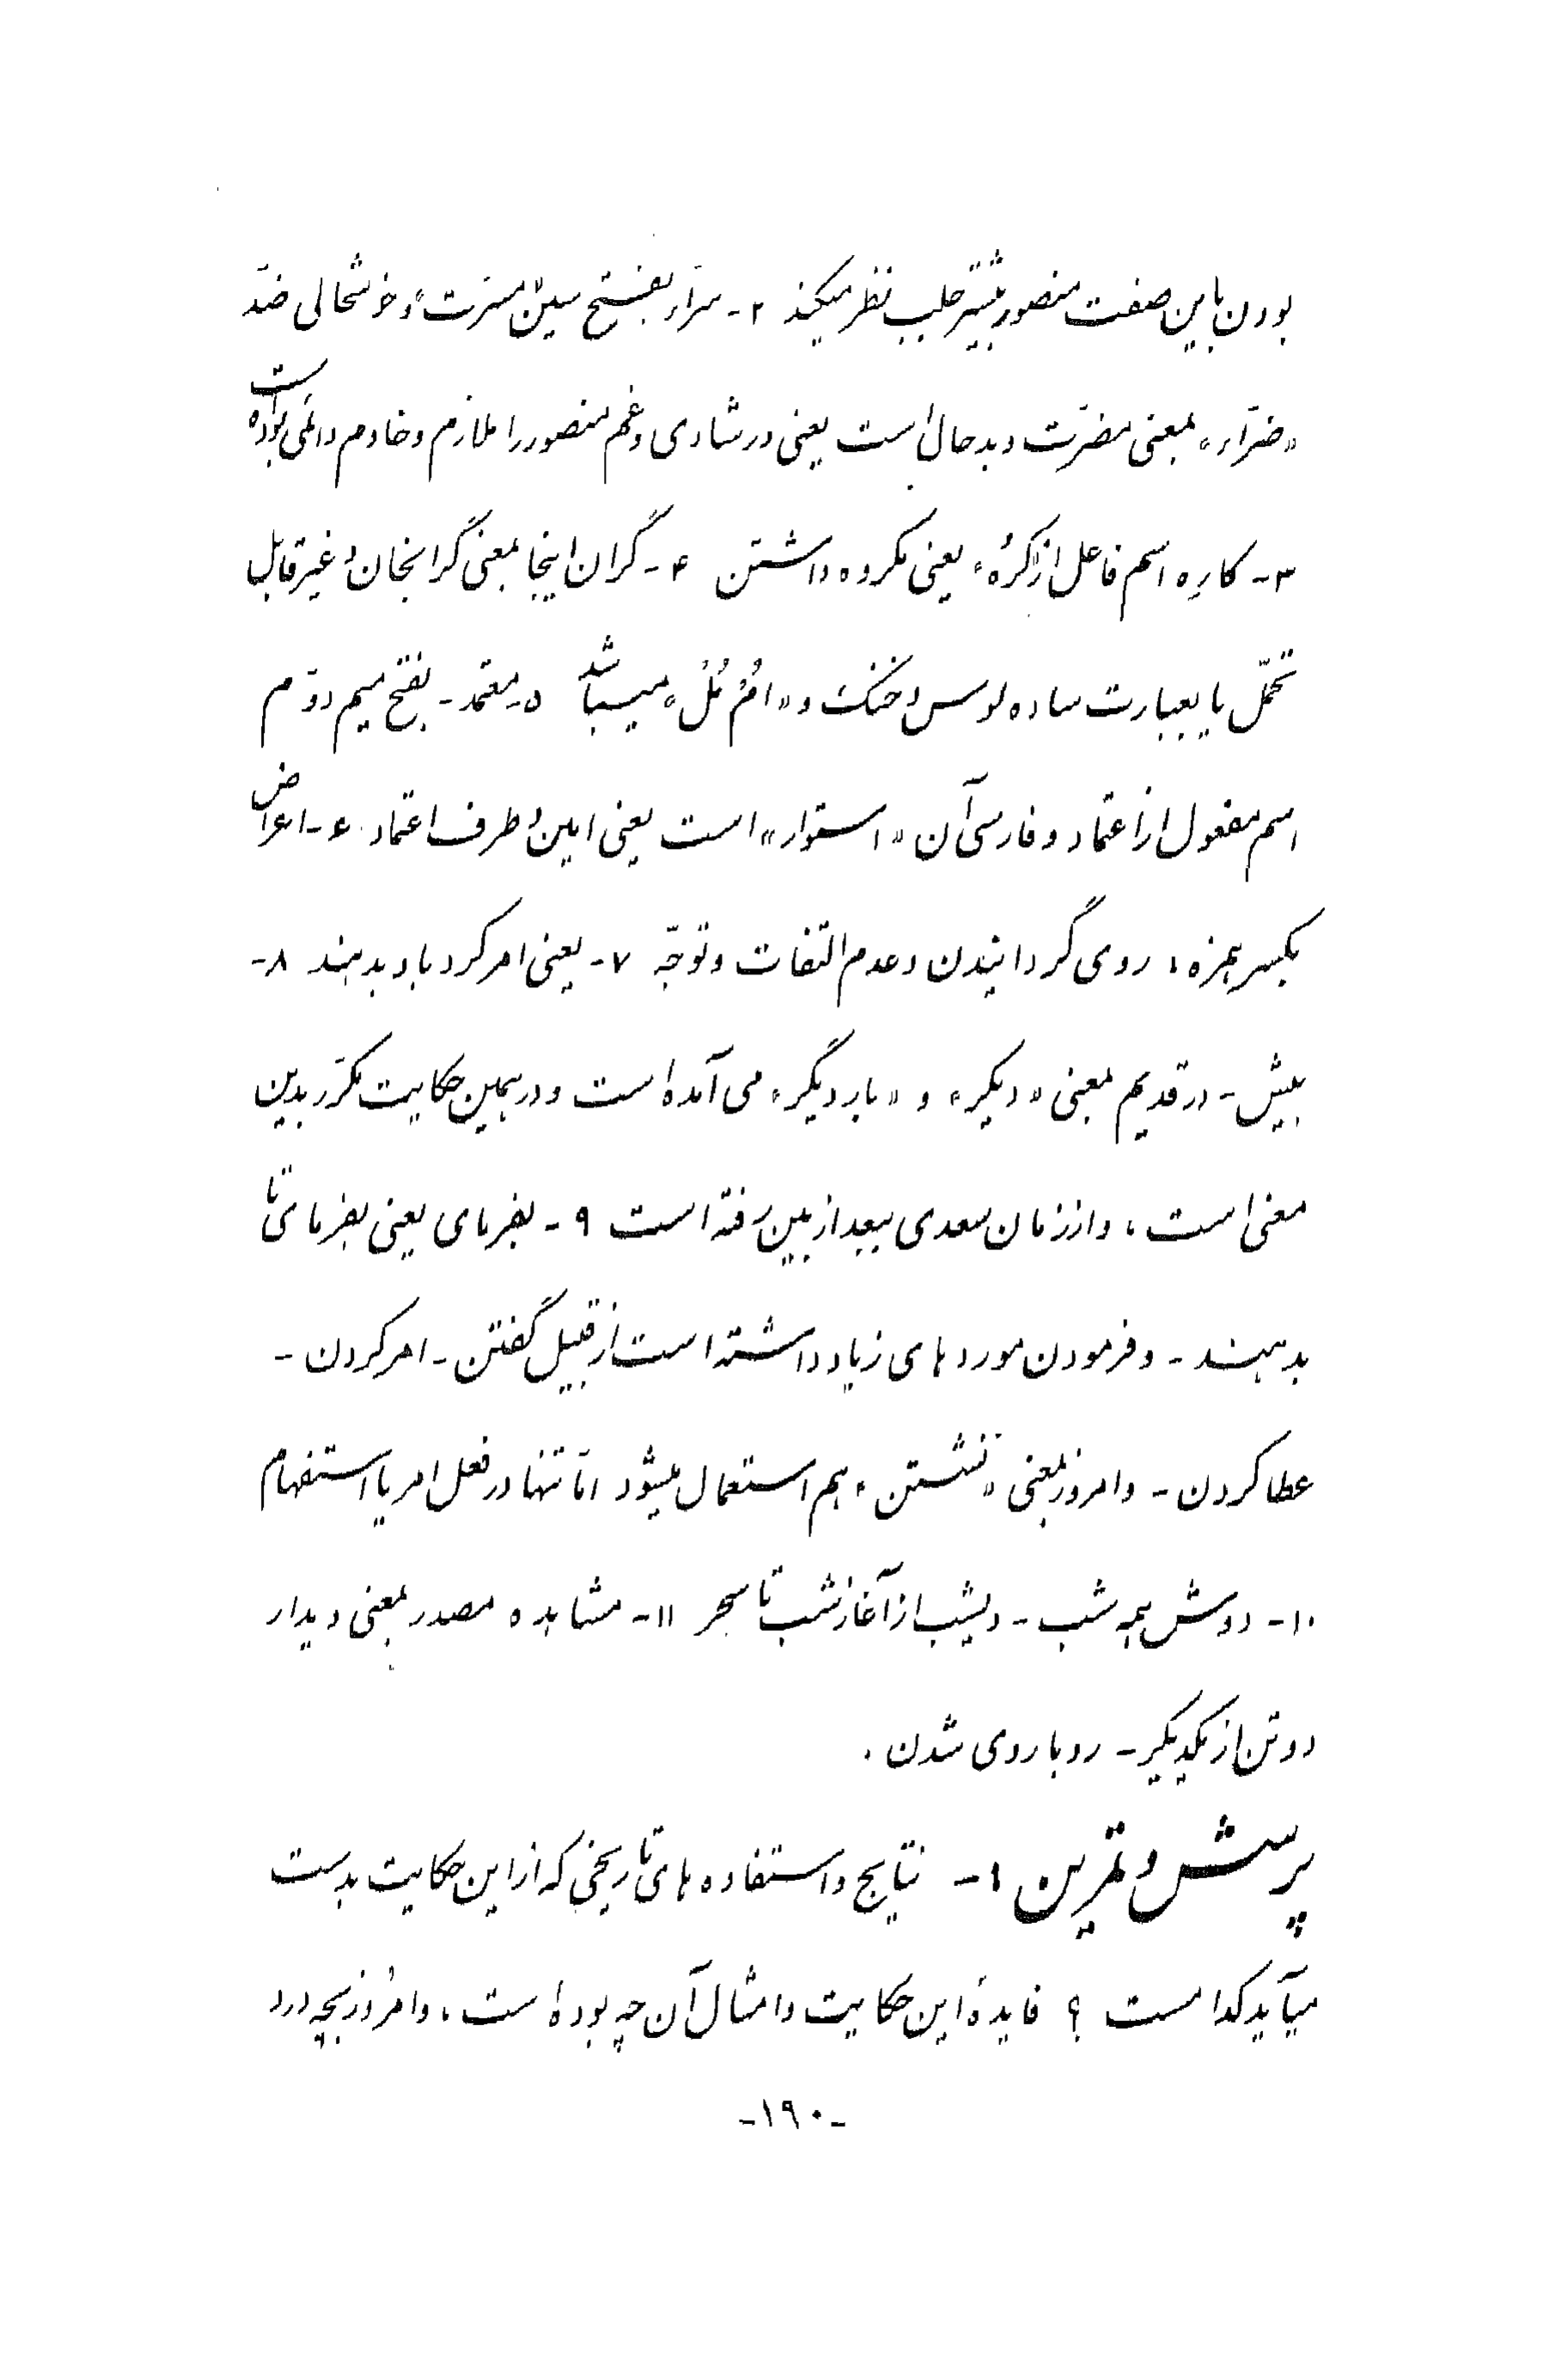 بودن باین صفت منصور بیشتر جلب نظر میکند ۲- سرّاء بفتح سین، مسرّت و خوشحالی ضدّ
«ضرّاء» بمعنی مضرّت و بدحالی است یعنی در شادی و غم منصور را ملازم و خادم دائمی بوده است
۳- کارِه اسم فاعل از «کُره» یعنی مکروه داشتن ۴- گران اینجا بمعنی گرانجان و غیر قابل
تحمّل یا بعبارت ساده لوس و خنک و «امُّل» میباشد ۵- معتمد- بفتح میم دوّم
اسم مفعول از اعتماد و فارسی آن «استوار» است یعنی امین و طرف اعتماد ۶- اعراض
بکسر همزه، روی گردانیدن و عدم التفات و توجّه ۷- یعنی امر کرد باو بدهند ۸-
بیش- در قدیم بمعنی «دیگر» و «بار دیگر» می‌آمده است و در همین حکایت مکرّر بدین
معنی است، و از زمان سعدی ببعد از بین رفته است ۹- بفرمای یعنی بفرمای تا
بدهند- و فرمودن موردهای زیاد داشته است از قبیل گفتن- امر کردن-
عطا کردن- و امروز بمعنی «نشستن» هم استعمال میشود امّا تنها در فعل امر یا استفهام
۱۰- دوش همه شب- دیشب از آغاز شب تا سحر ۱۱- مشاهده مصدر بمعنی دیدار
دو تن از یکدیگر- روباروی شدن.
پرسش و تمرین ۱- نتایج و استفاده‌های تاریخی که از این حکایت بدست
میآید کدامست؟ فایدۀ این حکایت و امثال آن چه بوده است، و امروز بچه درد
-۱۹۰-